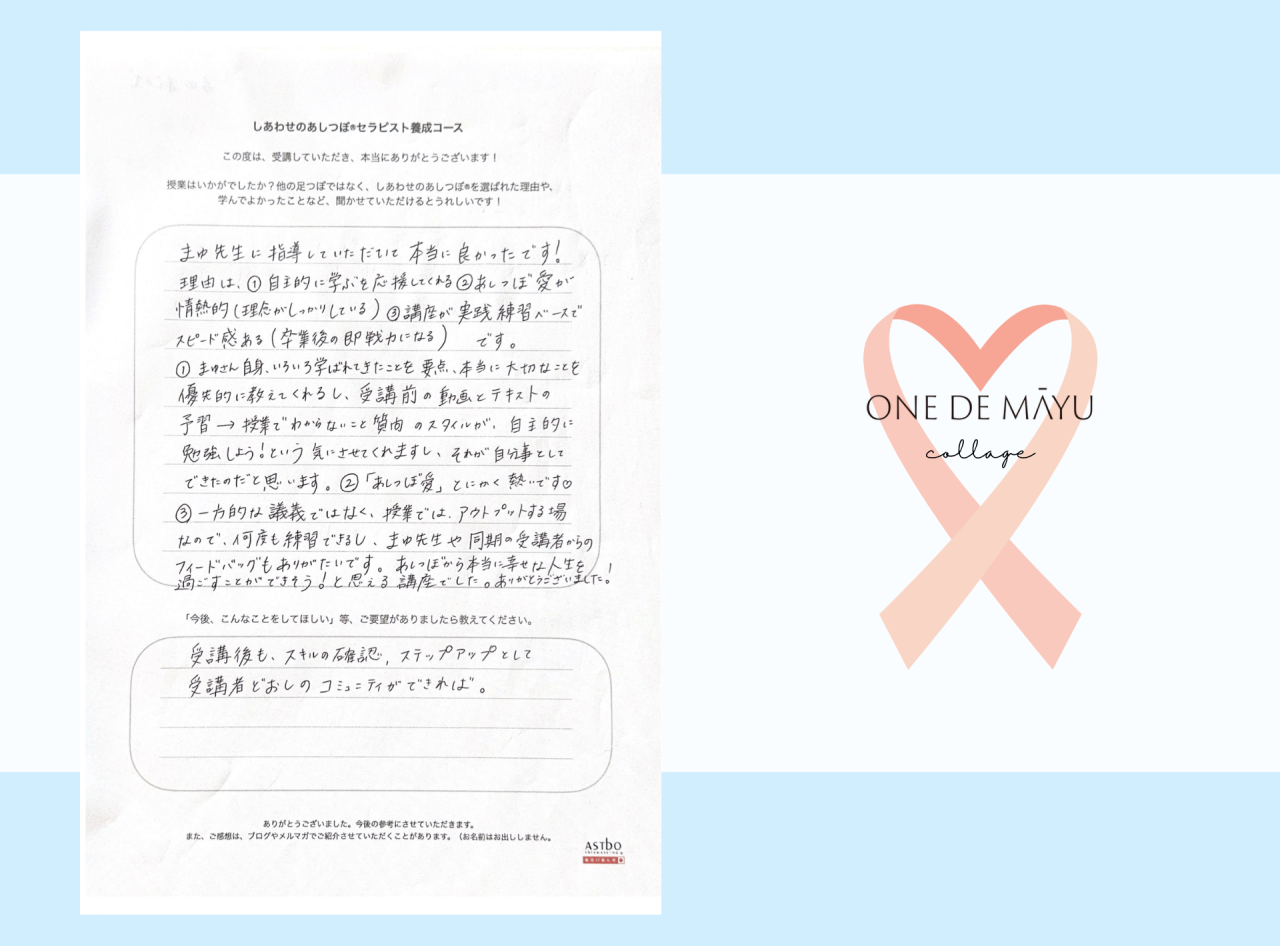 しあわせのあしつぼ®セラピスト養成コース
この度は、受講していただき、本当にありがとうございます！
授業はいかがでしたか？他の足つぼではなく、しあわせのあしつぼ®を選ばれた理由や、
学んでよかったことなど、聞かせていただけるとうれしいです！
まゆ先生に指導していただいて本当に良かったです！
理由は、①自主的に学ぶを応援してくれる②あしつぼ愛が
情熱的(理念がしっかりしている)③講座が実践練習ベースで
スピード感ある(卒業後の即戦力になる) です。
①まゆさん自身、いろいろ学ばれてきたことを要点、本当に大切なことを
優先的に教えてくれるし、受講前の動画とテキストの
予習→授業でわからないこと質問のスタイルが、自主的に
勉強しよう！という気にさせてくれますし、それが自分事として
できたのだと思います。②「あしつぼ愛」とにかく熱いです♡
③一方的な講義ではなく、授業では、アウトプットする場
なので、何度も練習できるし、まゆ先生や同期の受講者からの
フィードバッグもありがたいです。あしつぼから本当に幸せな人生を
過ごすことができそう！と思える講座でした。ありがとうございました！
「今後、こんなことをしてほしい」等、ご要望がありましたら教えてください。
受講後も、スキルの確認、ステップアップとして
受講者どおしのコミュニティができれば。
ありがとうございました。今後の参考にさせていただきます。
また、ご感想は、ブログやメルマガでご紹介させていただくことがあります。（お名前はお出ししません。
ASTbO
ONE DE MĀYU
collage